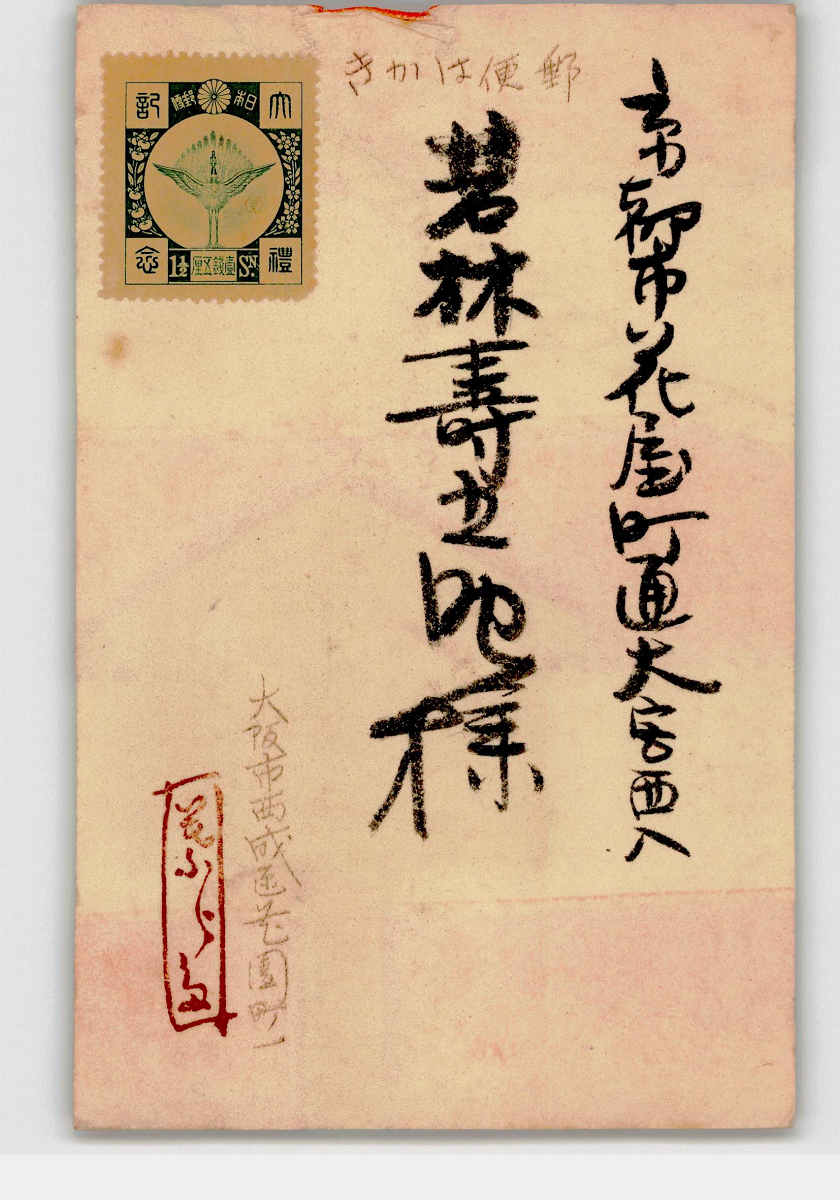 郵便はかき
京都市花屋町通大宮西入
若林壽 様
大阪市西成区花園町一
大禮記念
日本郵便
1½ 壹錢五厘 Sn.